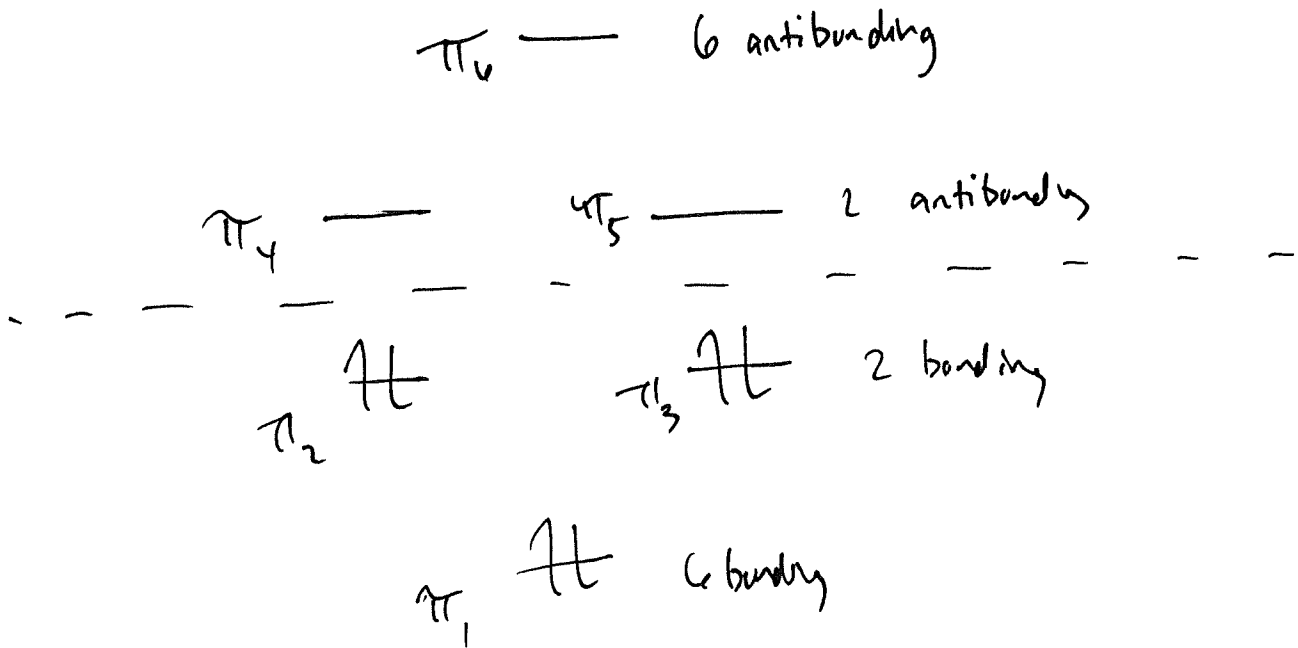 π6 6 antibonding
π4 π5 2 antibonding
π2 π3 2 bonding
π1 6 bonding